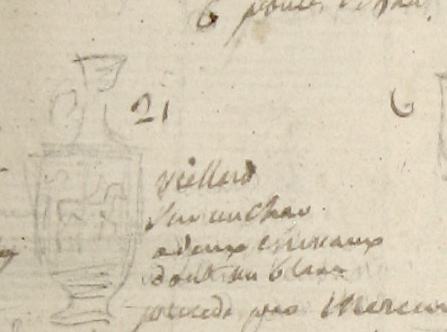 6 pouces
21
6
viellard
sur un char
a deux chevaux
dont un blanc
precedé par Mercur